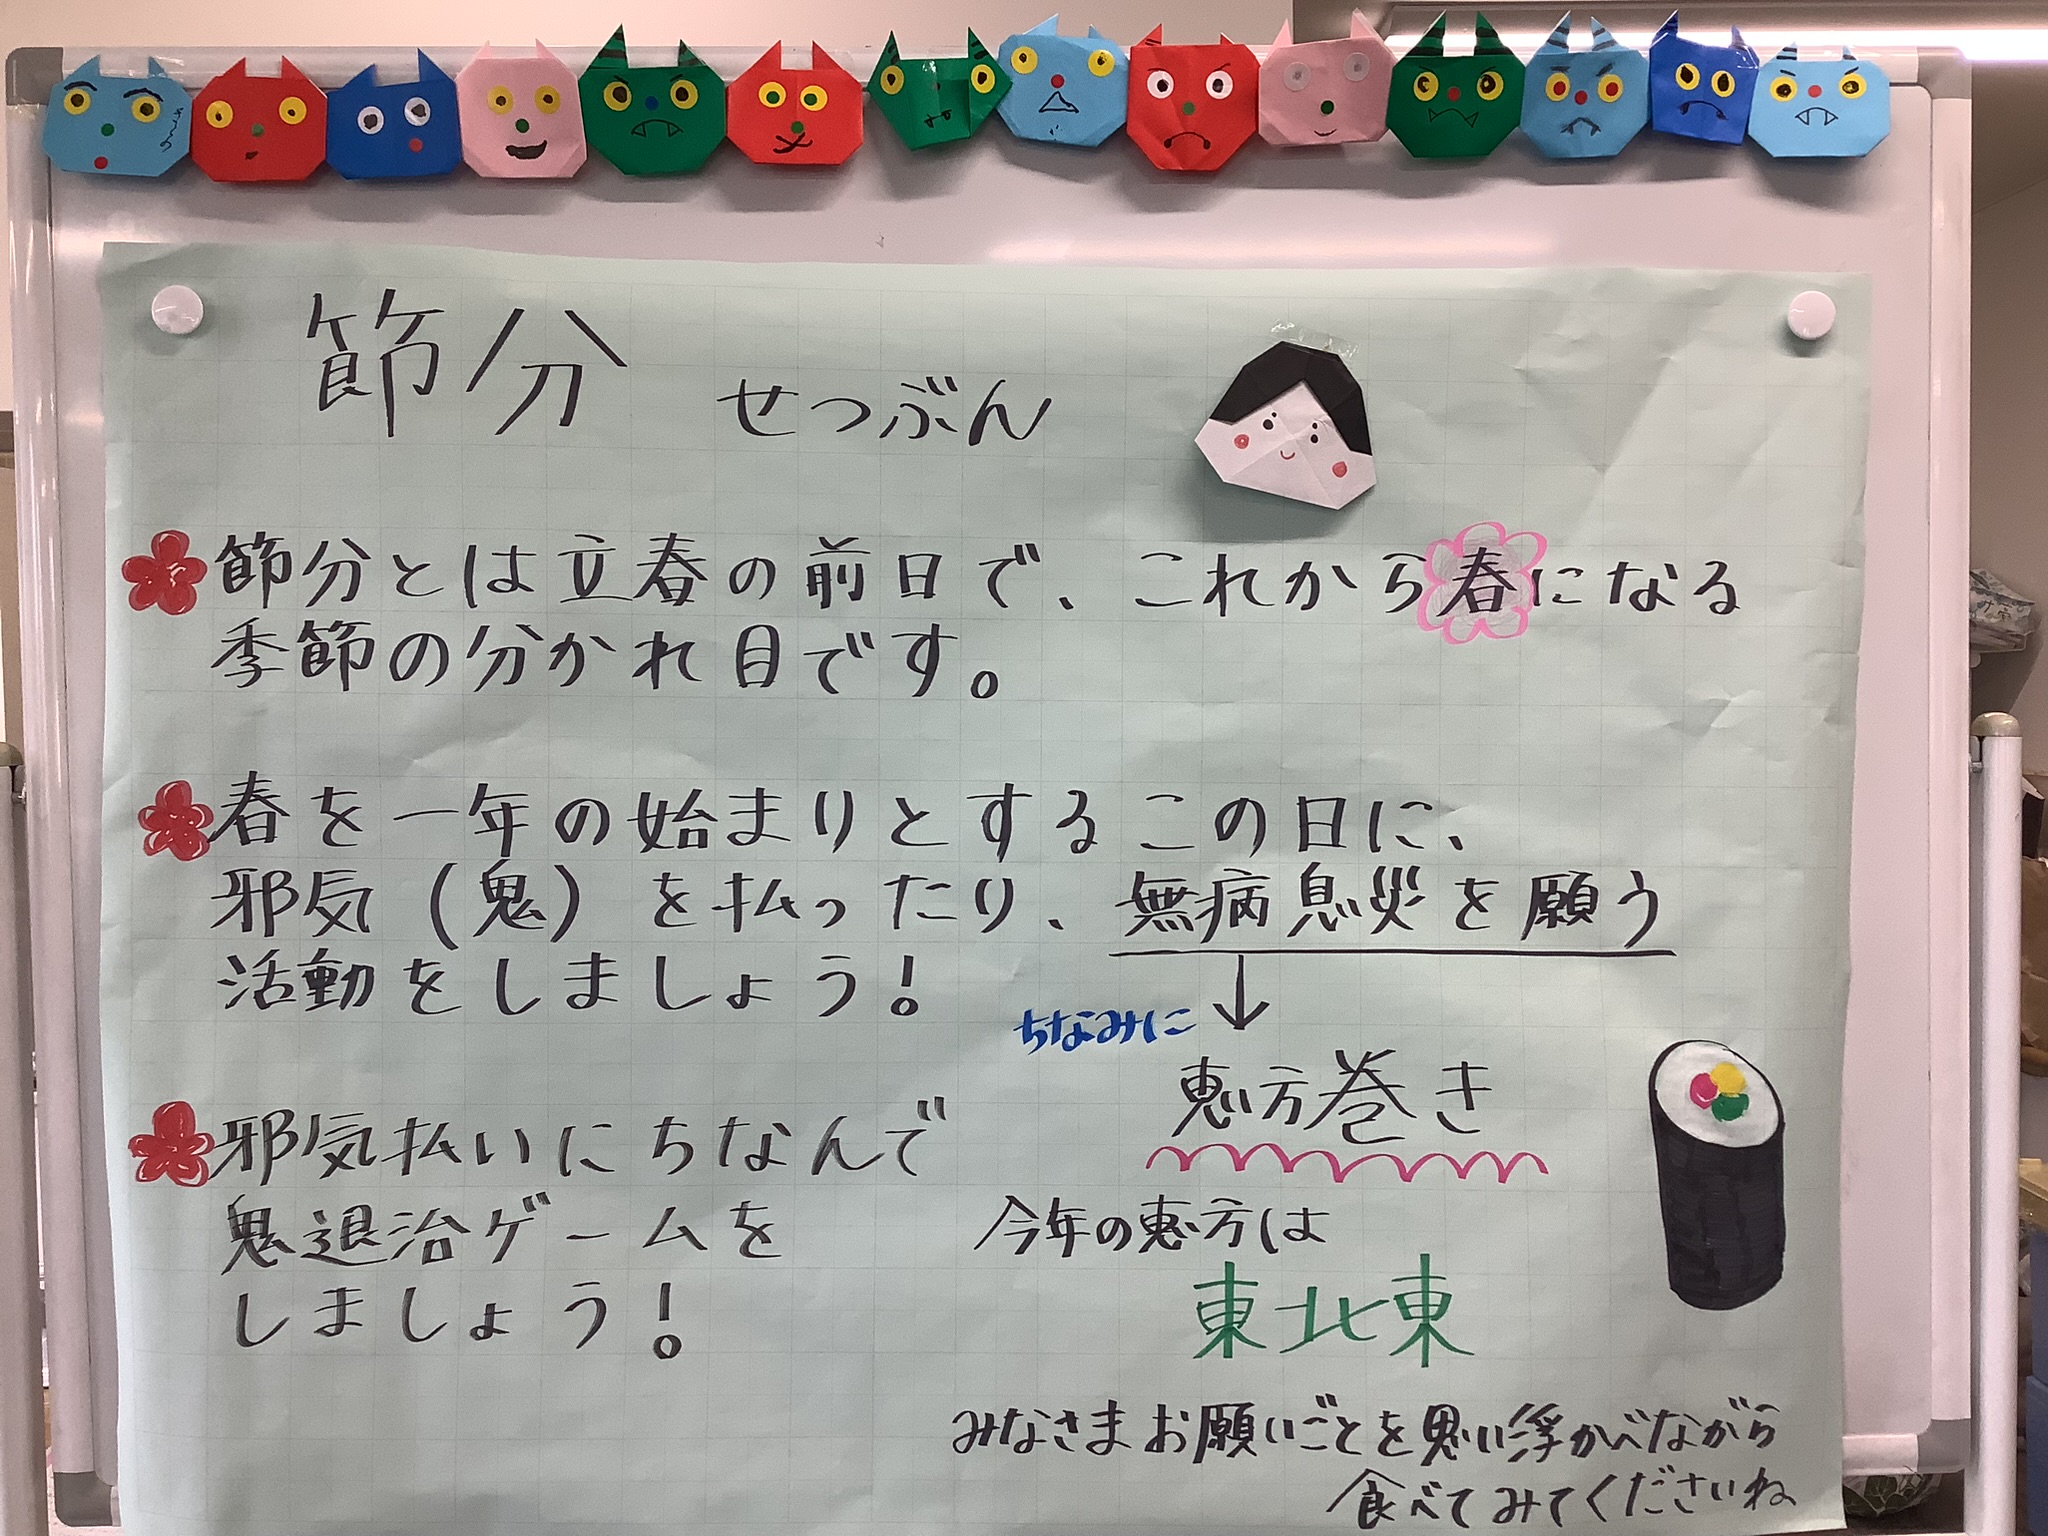 節分 せつぶん
節分とは立春の前日で、これから春になる
季節の分かれ目です。
春を一年の始まりとするこの日に、
邪気(鬼)を払ったり、無病息災を願う
活動をしましょう!
ちなみに
恵方巻き
今年の恵方は
東北東
みなさまお願いごとを思い浮かべながら
食べてみてくださいね
邪気払いにちなんで
鬼退治ゲームを
しましょう!